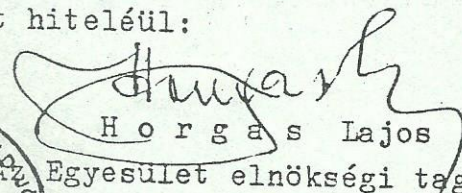 hiteléül:
Horgas Lajos
Egyesület elnökségi tag